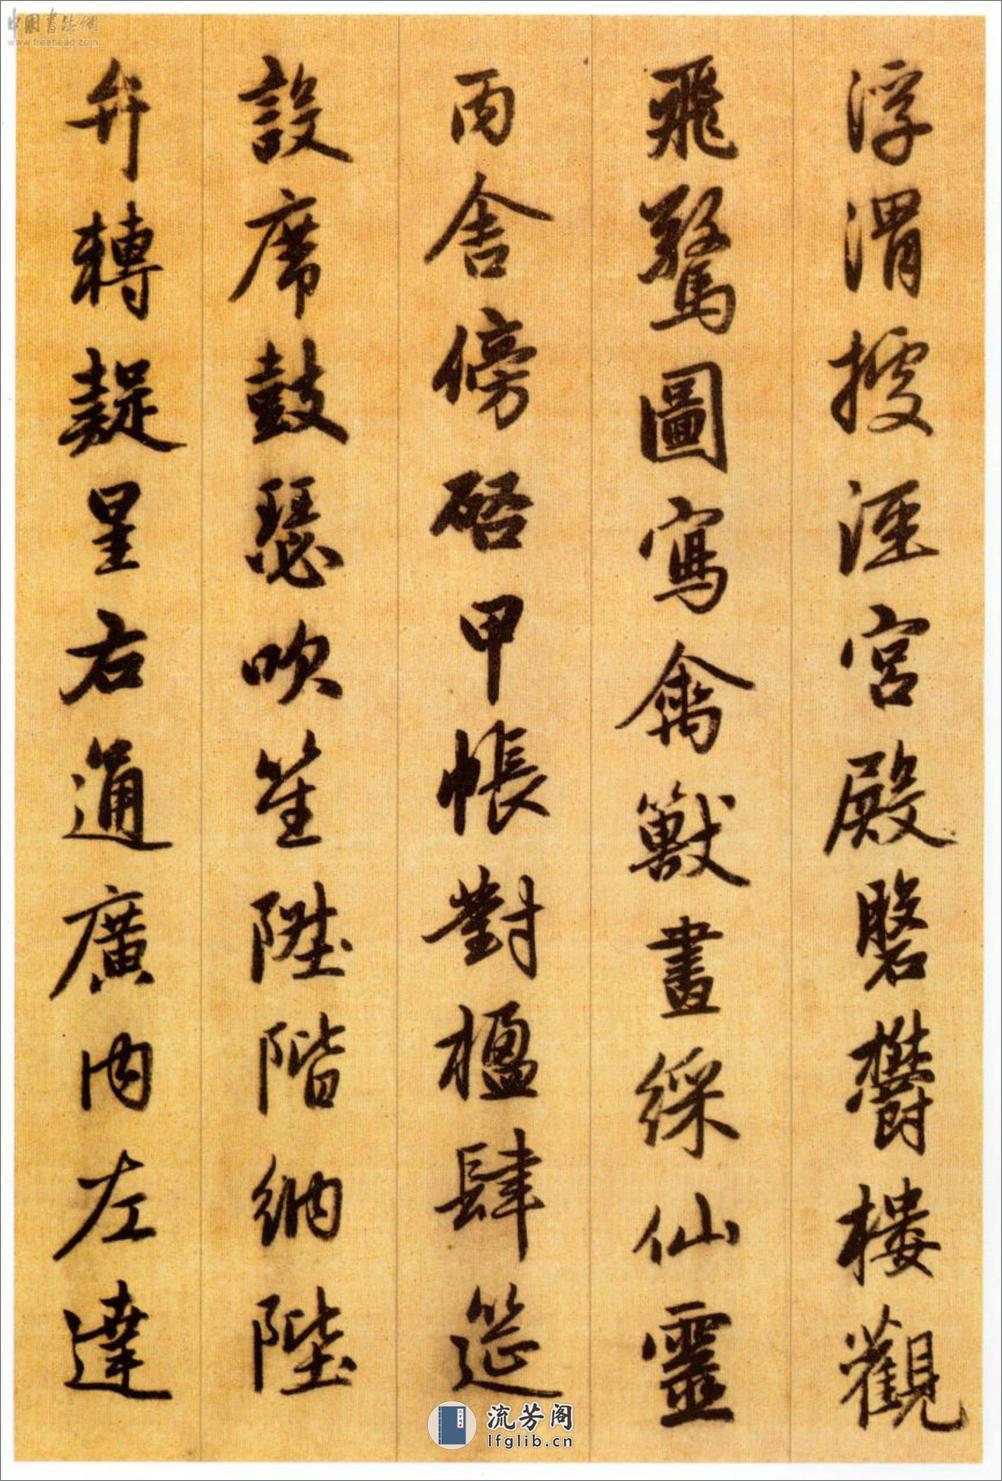 浮渭據涇宮殿磐鬱樓觀
飛驚圖寫禽獸畫綵仙靈
丙舍傍啓甲帳對楹肆筵
設席鼓瑟吹笙陞階納陛
弁轉疑星右通廣內左達
中国书法网
www.freehead.com
流芳阁
lfglib.cn